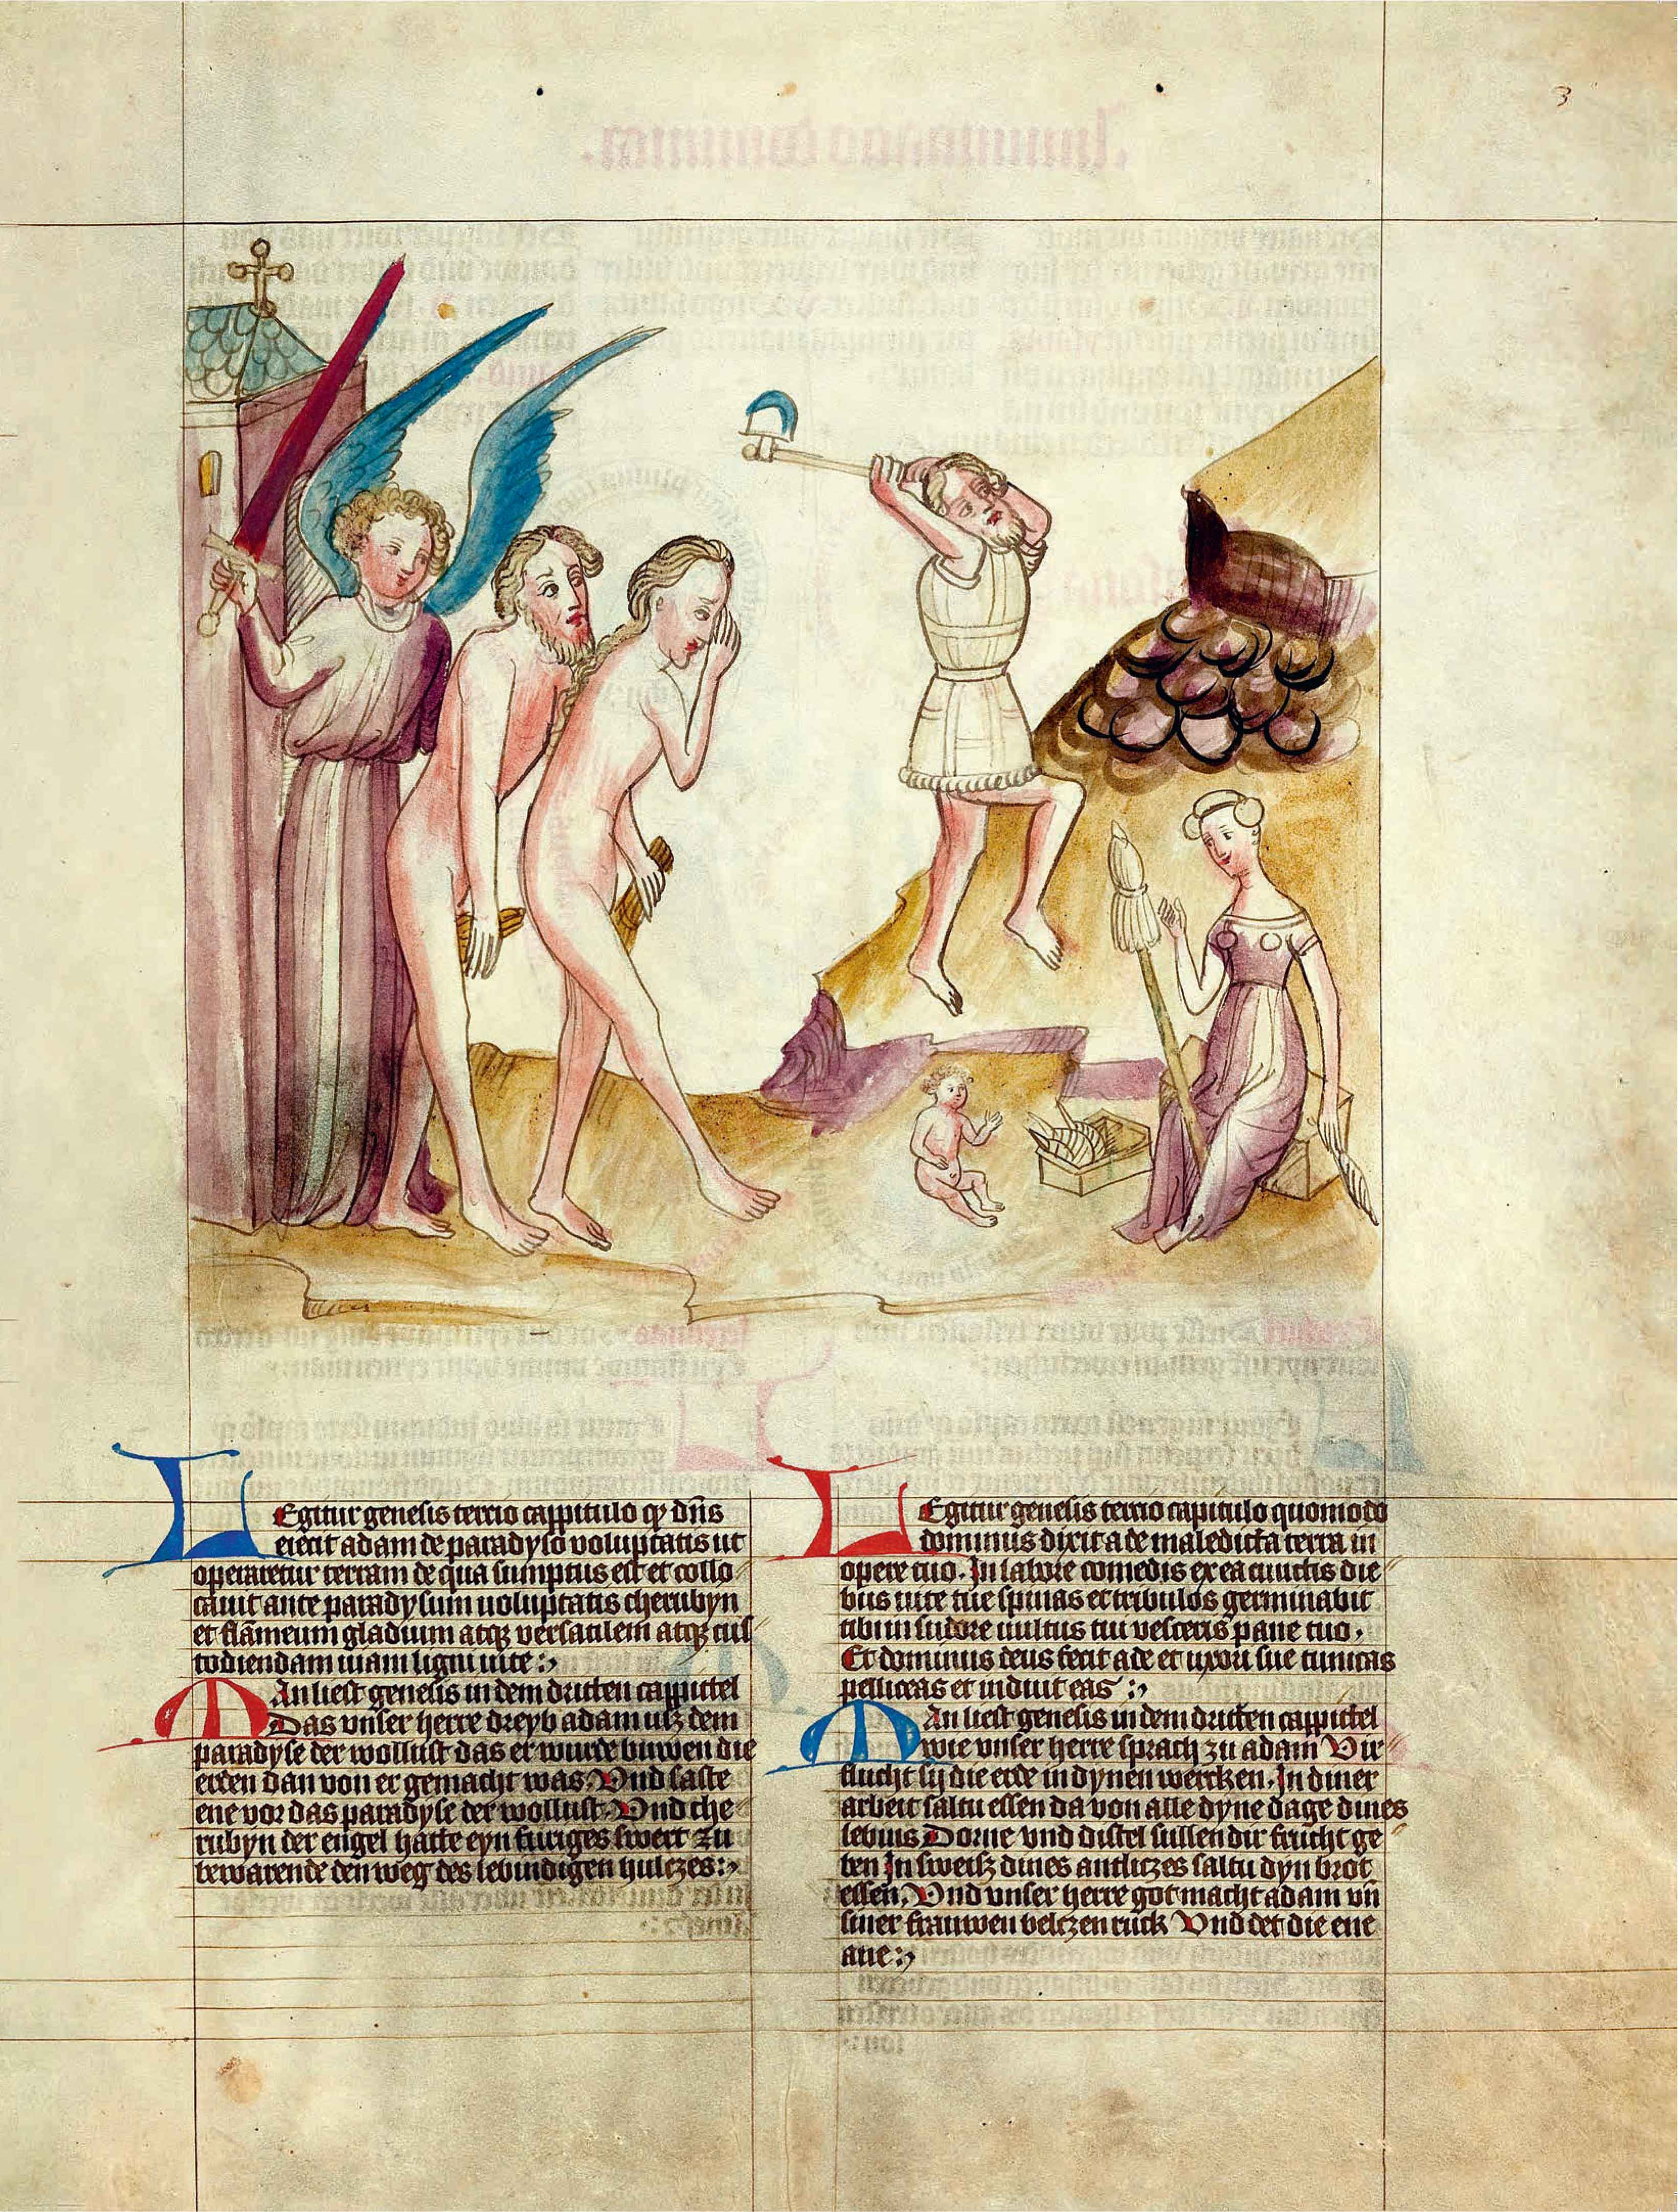 3
LEgitur genesis tercio cappitulo qͥ dn̄s
eiecit adam de paradyso voluptatis ut
operaretur terram de qua sumptus est et collo-
cauit ante paradysum uoluptatis cherubyn
et flāmeum gladium atqꝫ versatilem atqꝫ cus
todiendam uiam ligni uite :,
MAn liest genesis in dem dritten cappittel
Das vnser herre dreyb adam usz dem
paradyse der wollust das er wurde buwen die
erden dan von er gemacht was. Vnd saste
ene vor das paradyse der wollust. Vnd che-
rubyn der engel hatte eyn furiges swert zu
bewarende den weg des lebindigen hulczes :,
LEgitur genesis tercio capitulo quomodo
dominus dixit ade maledicta terra in
opere tuo. In labore comedis ex ea cunctis die-
bus uite tue spinas et tribulos germinabit
tibi in sudore uultus tui vesceris pane tuo,
Et dominus deus fecit ade et uxori sue tunicas
pelliceas et induit eas :,
MAn liest genesis in dem dritten cappittel
wie vnser herre sprach zu adam Vir
flucht sij die erde in dynen wercken. In diner
arbeit saltu essen da von alle dyne dage dines
lebins Dorne vnd distel sullen dir frucht ge-
ben In sweisz dines antliczes saltu dyn brot
essen. Vnd vnser herre got macht adam vn̄
siner frauwen belczen rück Vnd det die ene
ane :,